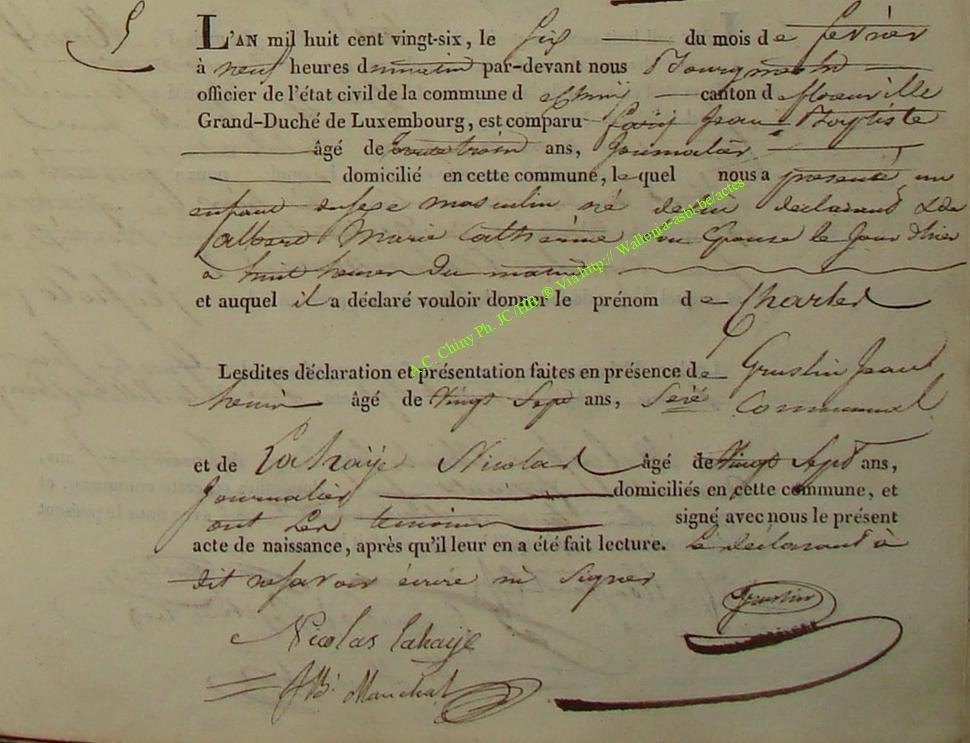 5
L'AN mil huit cent vingt-six, le six du mois de fevrier
à neuf heures du matin par-devant nous Bourgmestre
officier de l'état civil de la commune d e Chiny canton d e florenville
Grand-Duché de Luxembourg, est comparu Jean Baptiste
âgé de trente trois ans, journalier
domicilié en cette commune, lequel nous a presenté un
enfant du sexe masculin né de lui declarant & de
Marie Catherine son Epouse le jour d'hier
a huit heures du matin
et auquel il a déclaré vouloir donner le prénom d e Charles
Lesdites déclaration et présentation faites en présence de Gruslin Jean
henri âgé de Vingt Sept ans, communal
et de Lahaije Nicolas âgé de Vingt Sept ans,
journalier domiciliés en cette commune, et
ont Les temoins signé avec nous le présent
acte de naissance, après qu'il leur en a été fait lecture. Le declarant à
dit ne savoir écrire ni signer
Gruslin
Nicolas Lahaije
JB: Marichal
A.C. Chiny Ph. JC/HB ® Via http:// Wallonia-asbl.be/actes